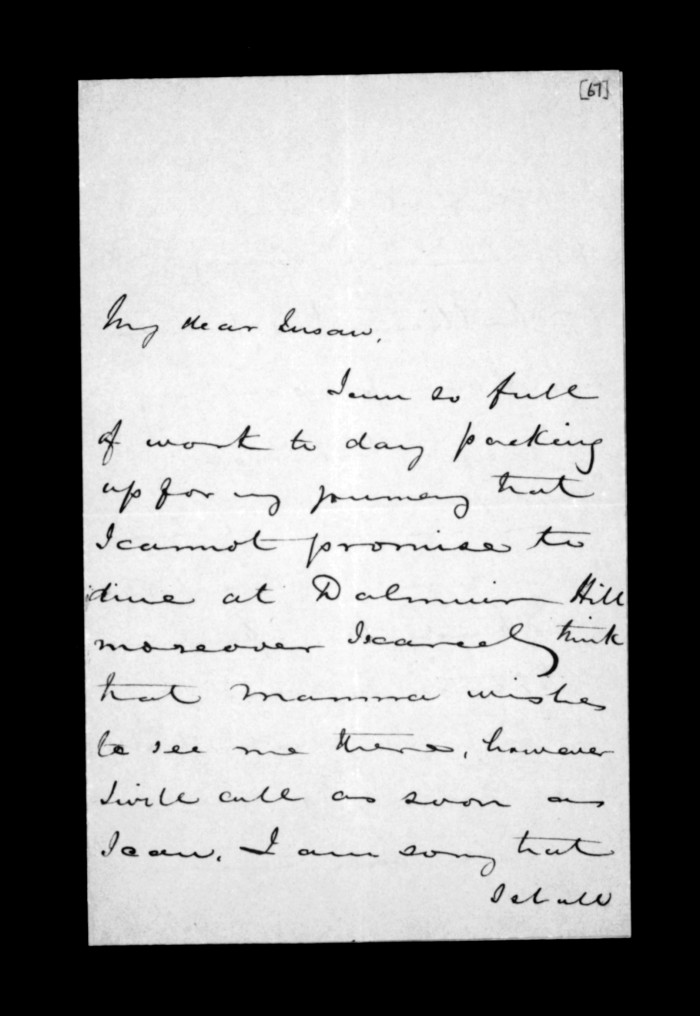 [67]
My dear Susan,
I am so full
of work to day packing
up for my journey that
I cannot promise to
dine at Dalmuir Hill
moreover I scarcely think
that Mamma wishes
to see me there, however
I will call as soon as
I can. I am sorry that
I shall